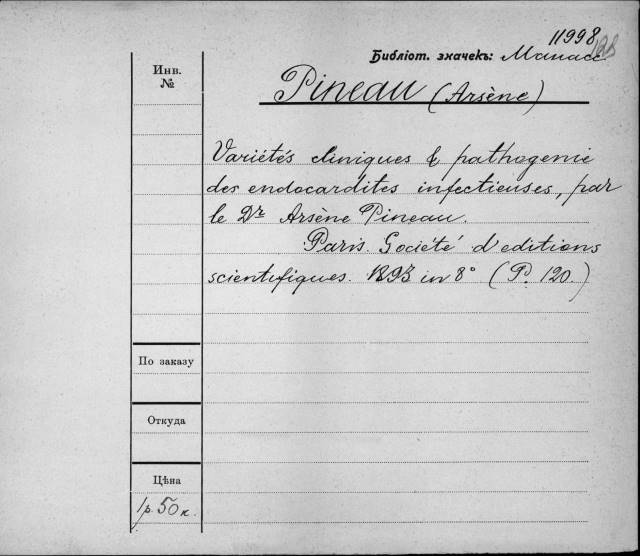 11998
Библіот. значекъ:
Инв.
№
Pineau (Arsène)
Variétés cliniques & pathogenie
des endocardites infectieuses, par
le Dr Arsène Pineau.
Paris. Société d'editions
scientifiques. 1893 in 8° (P. 120.)
По заказу
Откуда
Цѣна
1р. 50 к.